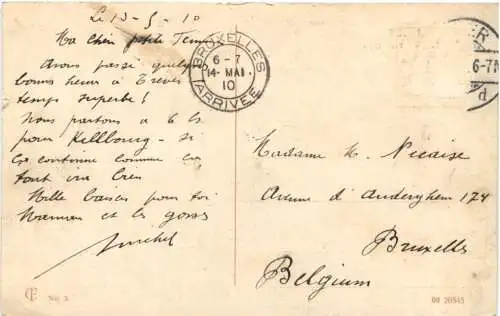 Le 13-5-10
Ma chère petite
Avons passé quelques
bonnes heures à Trèves
temps superbe!
Nous partons à 6 hs
pour Kyllbourg - si
ça continue comme ça
tout ira bien
Mille baisers pour toi
Maman et les gosses
Michel
BRUXELLES
6-7
14-MAI
10
(ARRIVÉE)
R
6-7N
d
Madame H. Nicaise
Avenue d'Auderghem 174
Bruxelles
Belgium
No. 3
09 20545